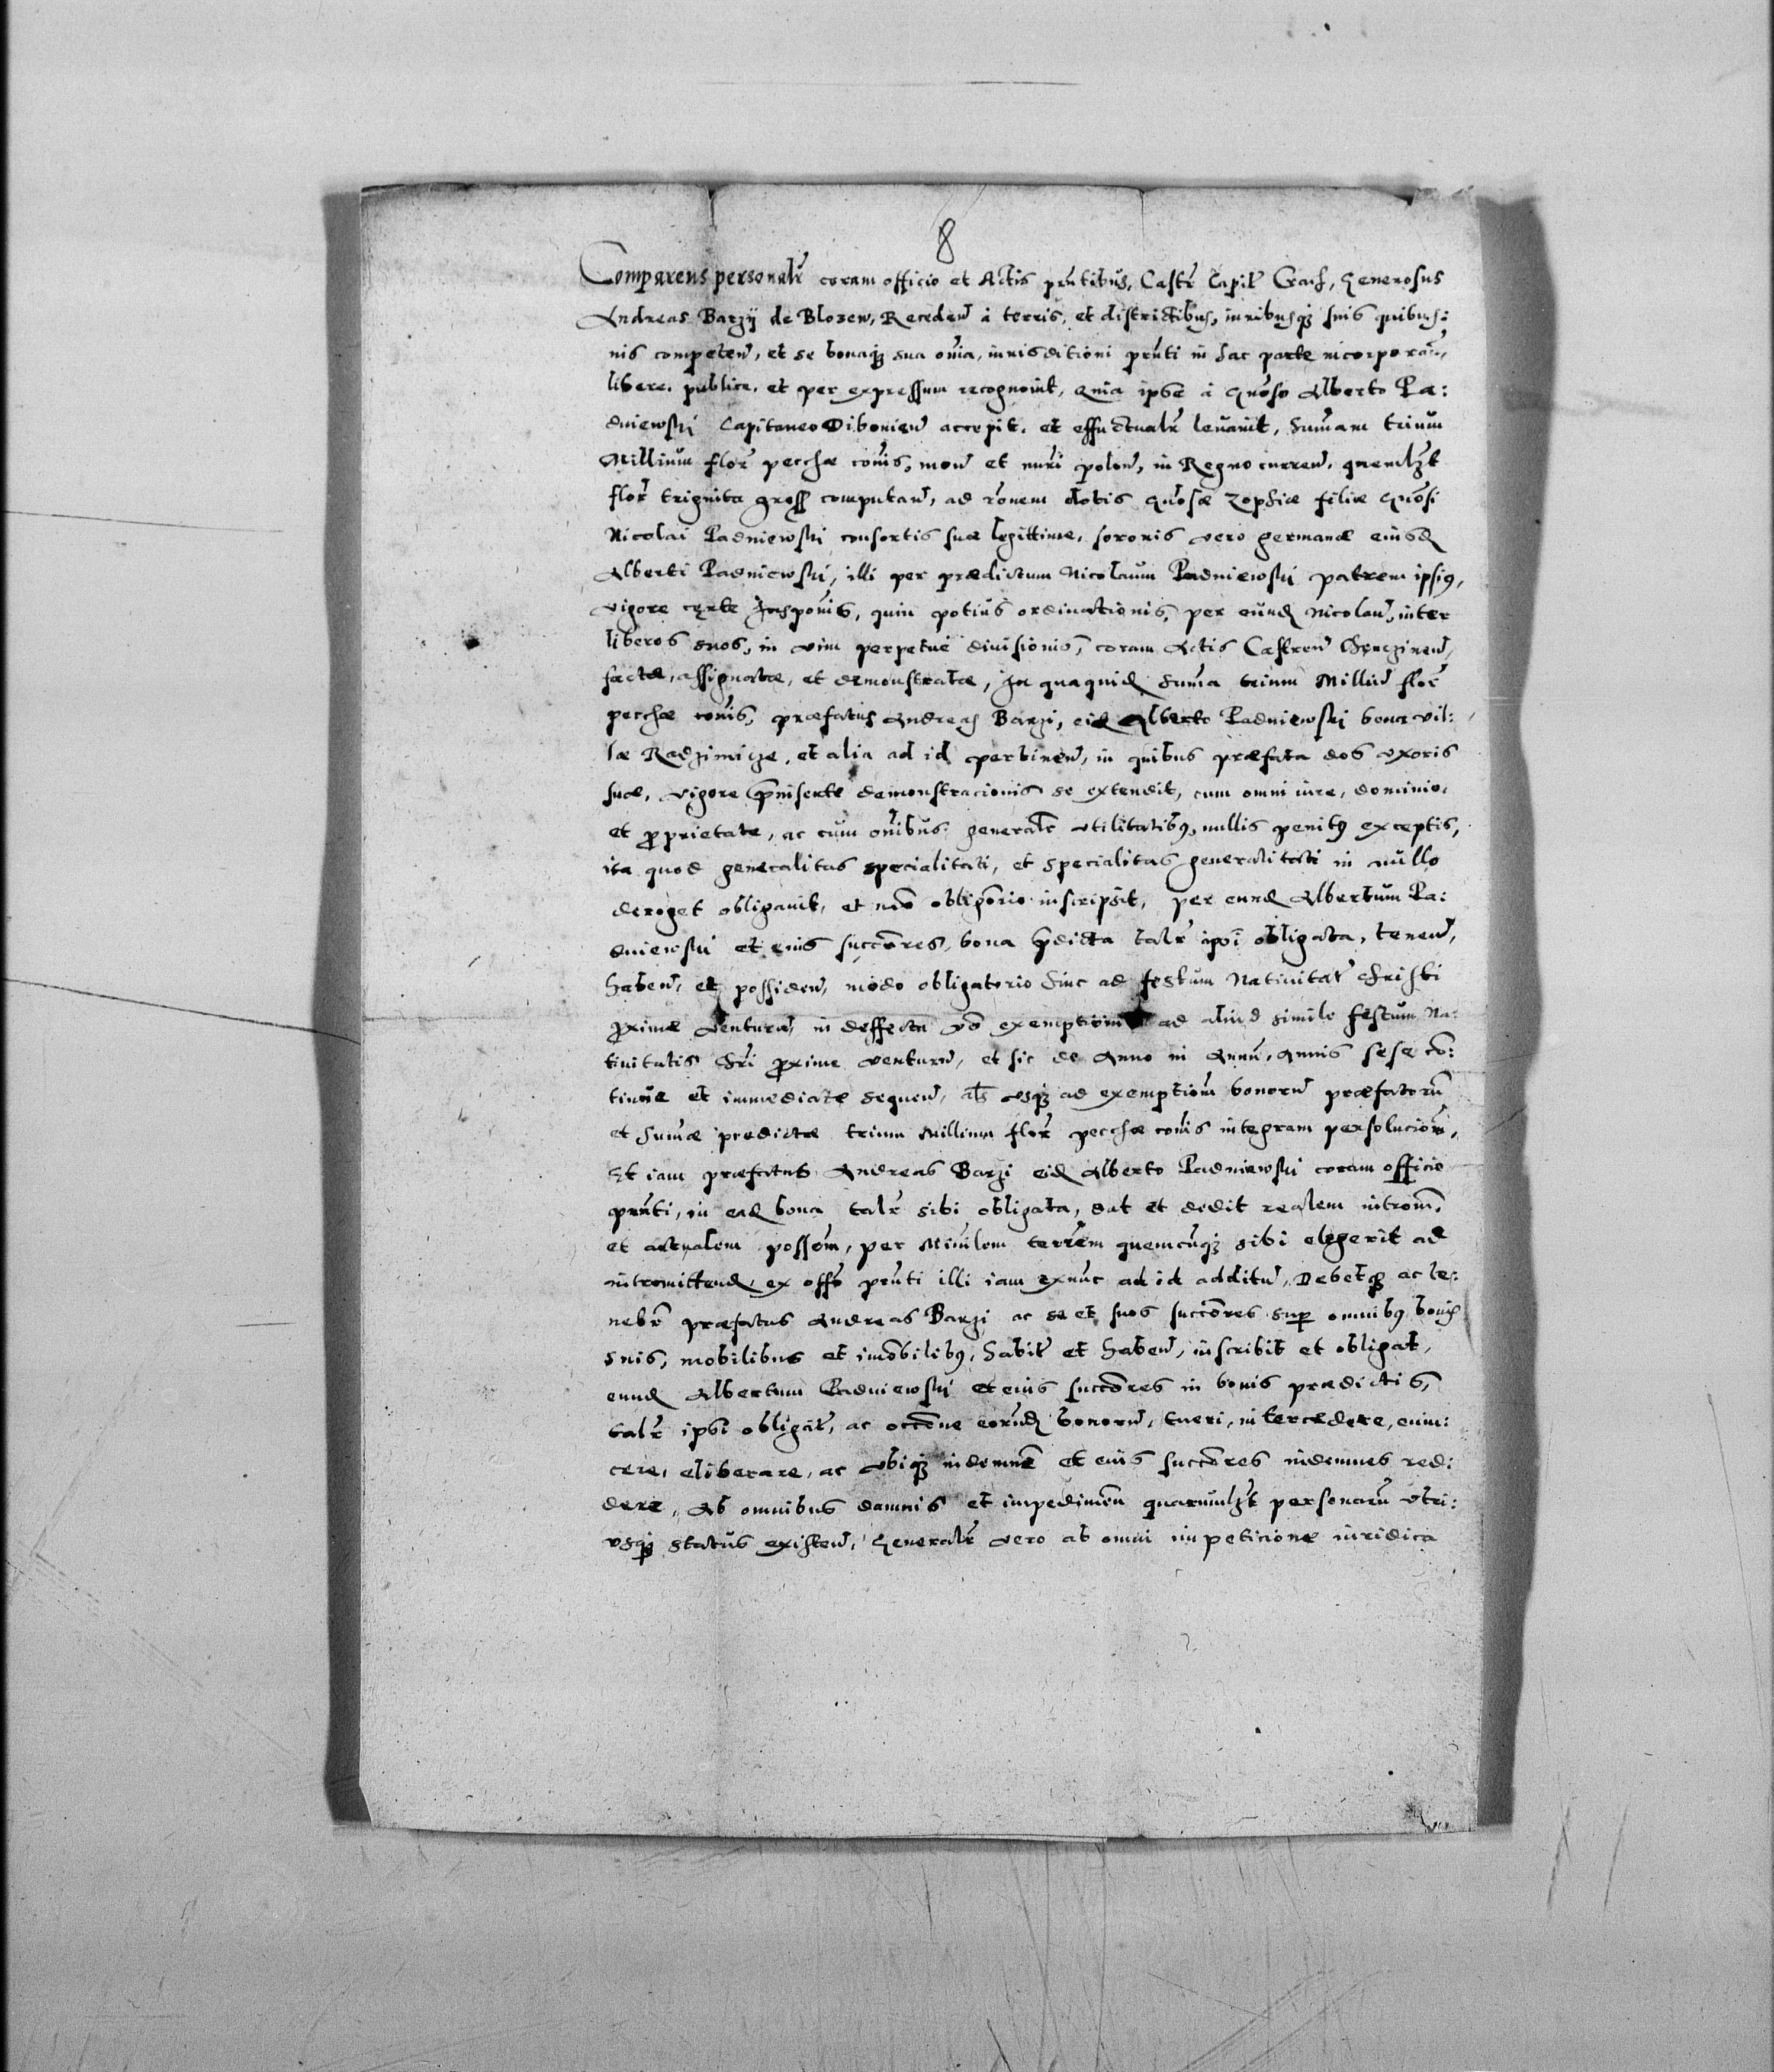 8
Comparens personalr̃ coram officio et Actis pñtibus, Castr̃ Capit̃ Crac̃, Generosus
Andreas Barzÿ de Blozew, Receden̄ à terris, et districtibus, iuribusqꝫ suis quibus:
uis competen̄, et se bonaqꝫ sua om̄ia, iurisditioni pñti in hac parte incorporan̄,
libere, publice, et per expressum recognouit, Quia ipse à Gnōso Alberto Pa:
dniewski Capitaneo Dibouien̄ accepit, et effectualr̃ leuauit, Summam trium
Millium flor̃ pecchæ com̄is, mon̄ et nūri polon̄, in Regno curren̄, quemlꝫt
flor̃ triginta gross computan̄, ad rōnem dotis Gnōsæ Zophiæ filiæ Gnōsi
Nicolai Padniewski consortis suæ legittimæ, sororis vero germanæ eiusd̄
Alberti Padniewski, illi per prædictum Nicolaum Padniewski patrem ipsiꝰ,
vigore certe, quin potius ordinationis, per eund̄ Nicolau, inter
liberos suos, in vim perpetuè diuisionis, coram Actis Castren̄ Chęczinen̄,
factæ, assignatæ, et demonstratæ, In quaquid̄ Sum̄a trium Milliū flor̃
pecchæ com̄is, præfatus Andreas Barzi, eid̄ Alberto Padniewski bona vil:
læ Radzimicze, et alia ad id pertinen̄, in quibus præfata dos vxoris
suæ, vigore p̄insertè demonstracionis se extendit, cum omni iure, dominio,
et ꝓprietate, ac cum om̄ibus generalr̃ vtilitatibꝰ, nullis penitꝰ exceptis,
ita quod generalitas specialitati, et specialitas generalitati in nullo
deroget obligauit, et mō obligōrio inscripsit, per eund̄ Albertum Pa:
dniewski et eius succōres, bona p̄dicta talr̃ ipsi obligata, tenen̄,
haben̄, et possiden̄, modo obligatorio hinc ad festum Natiuitat̃ Christi
ꝓxime ventura, in deffectu vō exemptionis ad aliud simile festum Na:
tiuitatis Chr̃i ꝓxime venturn̄, et sic de Anno in Annū, Annis sese con:
tinue et immediatè sequen̄, als vsqꝫ ad exemptionē bonorū præfatorū
et sum̄æ prædictæ trium Millium flor̃ pecchæ com̄is integram persolucionē,
Et iam præfatus Andreas Barzi eid̄ Alberto Padniewski coram officio
pñti, in ead̄ bona talr̃ sibi obligata, dat et dedit realem intrōm,
et actualem possōm, per Min̄lem terr̃em quemcūqꝫ sibi elegerit ad
intromittend̄, ex offō pñti illi iam exnunc ad id additū, Debetqꝫ ac te:
nebr̃ præfatus Andreas Barzi ac se et suos succōres sup̄ omnibꝰ bonis
suis, mobilibus et imōbilibꝰ, habit̃ et haben̄, inscribit et obligat,
eund̄ Albertum Padniewski et eius succōres in bonis prædictis,
talr̃ ipsi obligat̃, ac occōne eorund̄ bonorū, tueri, intercedere, euin:
cere, eliberare, ac vbiqꝫ indemnē et eius succōres indemnes red:
dere, Ab omnibus damnis et impedimen̄ quarumlꝫt personarū vtri:
vsqꝫ status existen̄, Generalr̃ vero ab omni impeticione iuridica